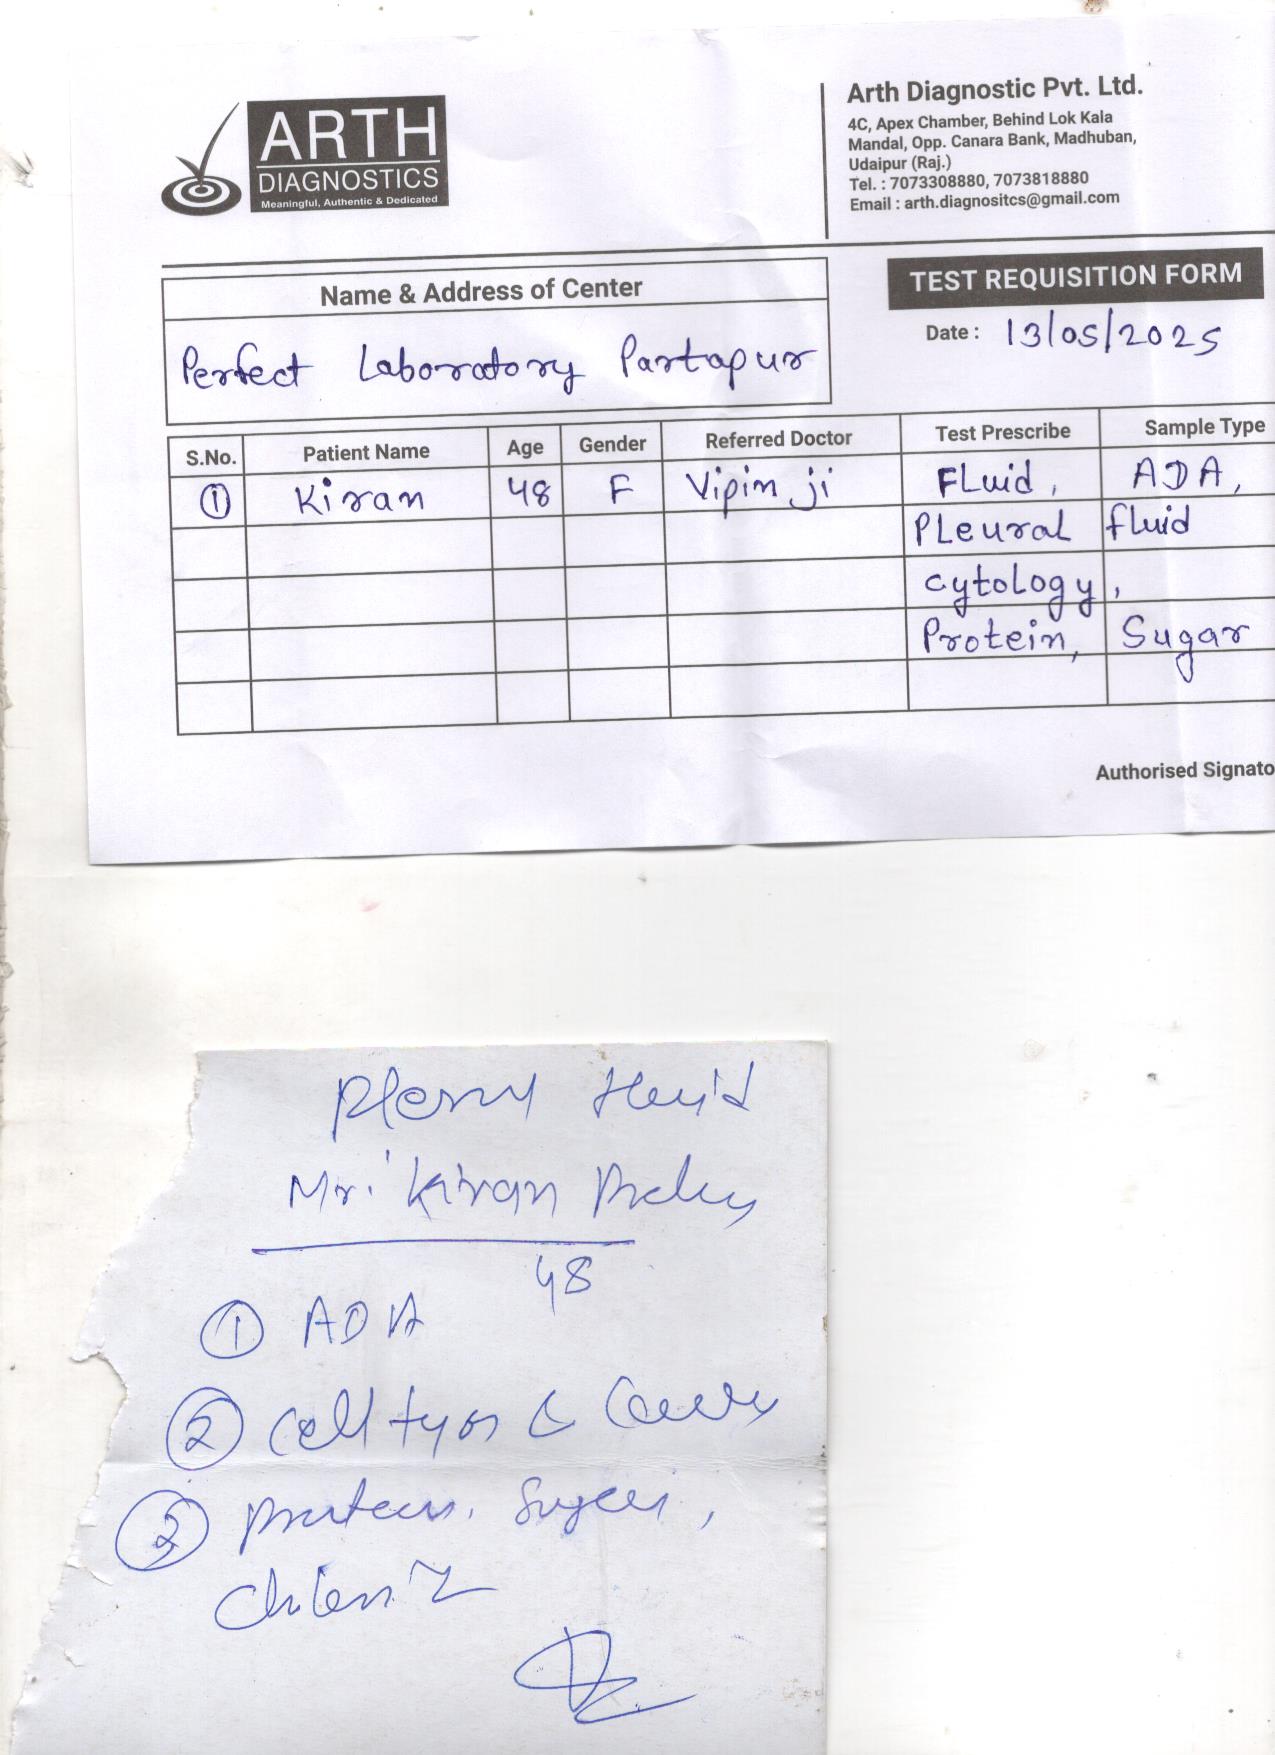 ARTH
DIAGNOSTICS
Meaningful, Authentic & Dedicated
Arth Diagnostic Pvt. Ltd.
4C, Apex Chamber, Behind Lok Kala
Mandal, Opp. Canara Bank, Madhuban,
Udaipur (Raj.)
Tel. : 7073308880, 7073818880
Email : arth.diagnositcs@gmail.com
Name & Address of Center
Perfect Laboratory Partapur
TEST REQUISITION FORM
Date : 13/05/2025
S.No. Patient Name Age Gender Referred Doctor Test Prescribe Sample Type
1 Kiran 48 F Vipin ji Fluid, ADA,
Pleural fluid
cytology,
Protein, Sugar
Authorised Signato
fluid
Mr. Kiran
48
1 ADA
2 Cell &